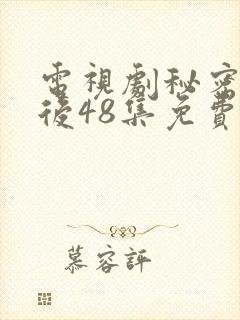 電視劇秘密
後48集免費
慕容評